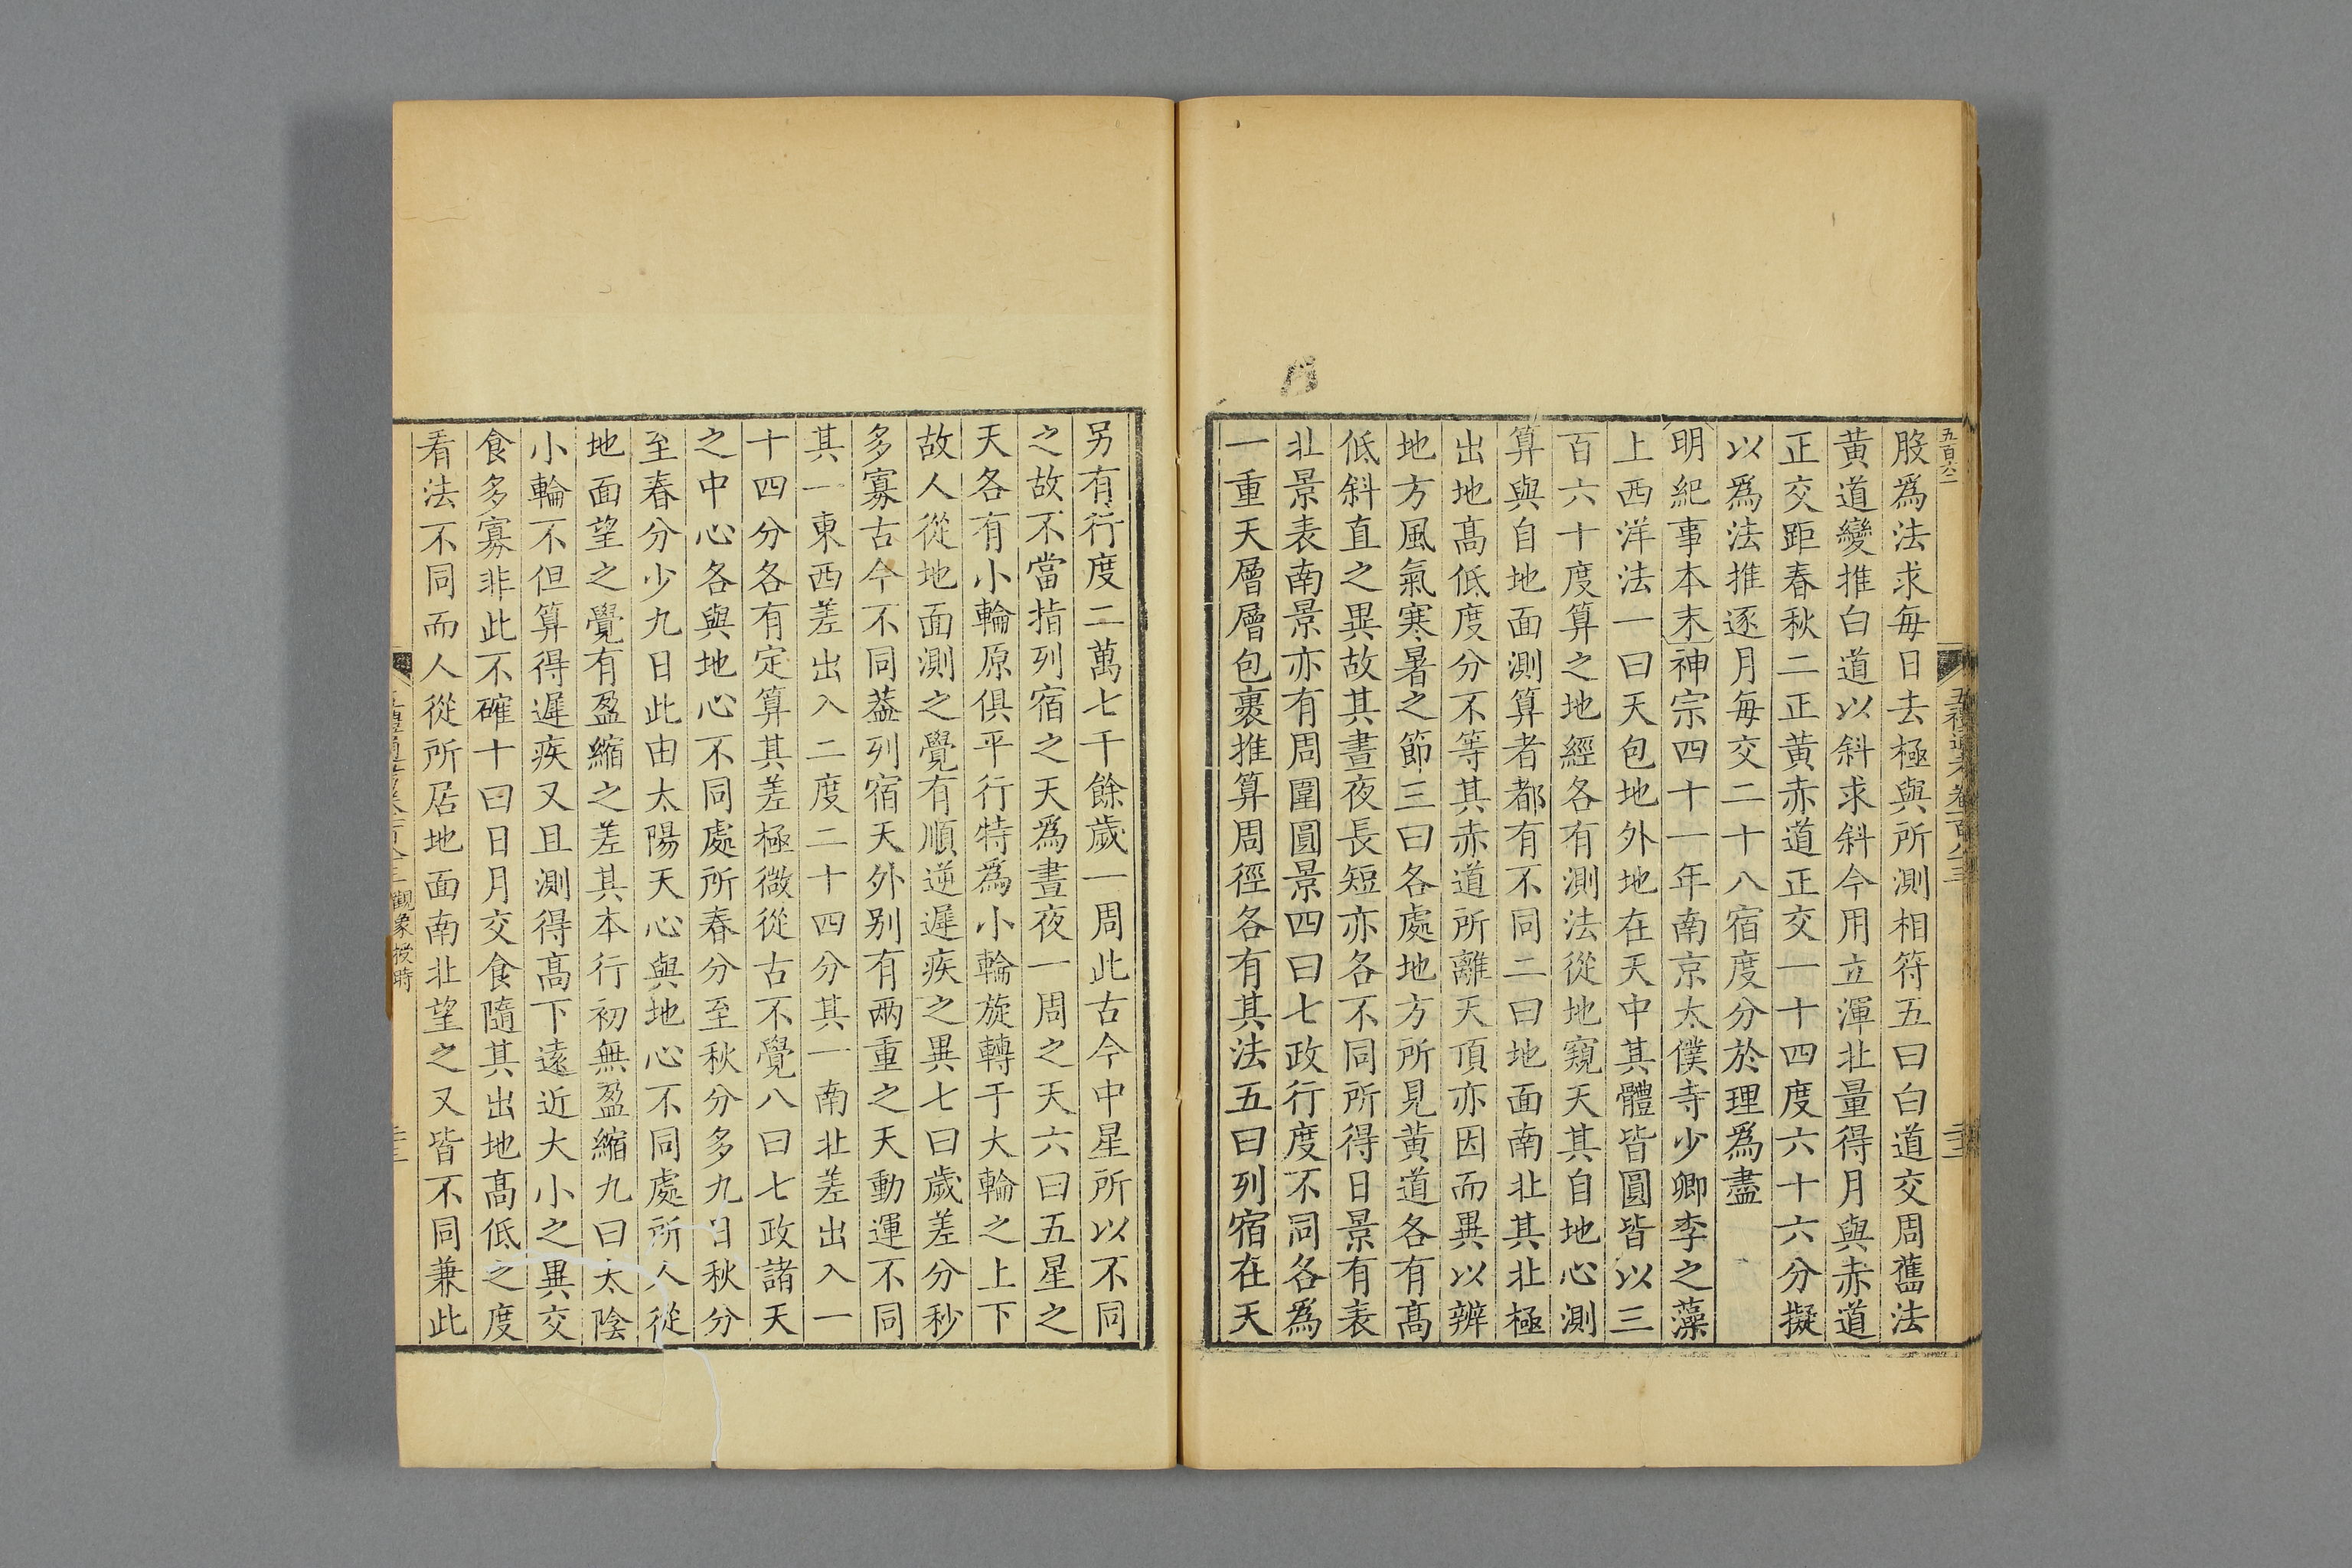 五百六二
五禮通考卷一百八十三
股爲法求每日去極與所測相符五曰白道交周舊法
黄道變推白道以斜求斜今用立渾北量得月與赤道
正交距春秋二正黄赤道正交一十四度六十六分擬
以爲法推逐月每交二十八宿度分於理爲盡
明紀事本末神宗四十一年南京太僕寺少卿李之藻
上西洋法一曰天包地外地在天中其體皆圓皆以三
百六十度算之地經各有測法從地窺天其自地心測
算與自地面測算者都有不同二曰地面南北其北極
出地髙低度分不等其赤道所離天頂亦因而異以辨
地方風氣寒暑之節三曰各處地方所見黄道各有髙
低斜直之異故其晝夜長短亦各不同所得日景有表
北景表南景亦有周圍圓景四曰七政行度不同各爲
一重天層層包裹推算周徑各有其法五曰列宿在天
另有行度二萬七千餘歲一周此古今中星所以不同
之故不當指列宿之天爲晝夜一周之天六曰五星之
天各有小輪原俱平行特爲小輪旋轉于大輪之上下
故人從地面測之覺有順逆遲疾之異七曰歲差分秒
多寡古今不同葢列宿天外别有兩重之天動運不同
其一東西差出入二度二十四分其一南北差出入一
十四分各有定算其差極微從古不覺八曰七政諸天
之中心各與地心不同處所春分至秋分多九日秋分
至春分少九日此由太陽天心與地心不同處所人從
地面望之覺有盈縮之差其本行初無盈縮九曰太陰
小輪不但算得遲疾又且測得髙下遠近大小之異交
食多寡非此不確十曰日月交食隨其出地髙低之度
看法不同而人從所居地面南北望之又皆不同兼此
觀象授時